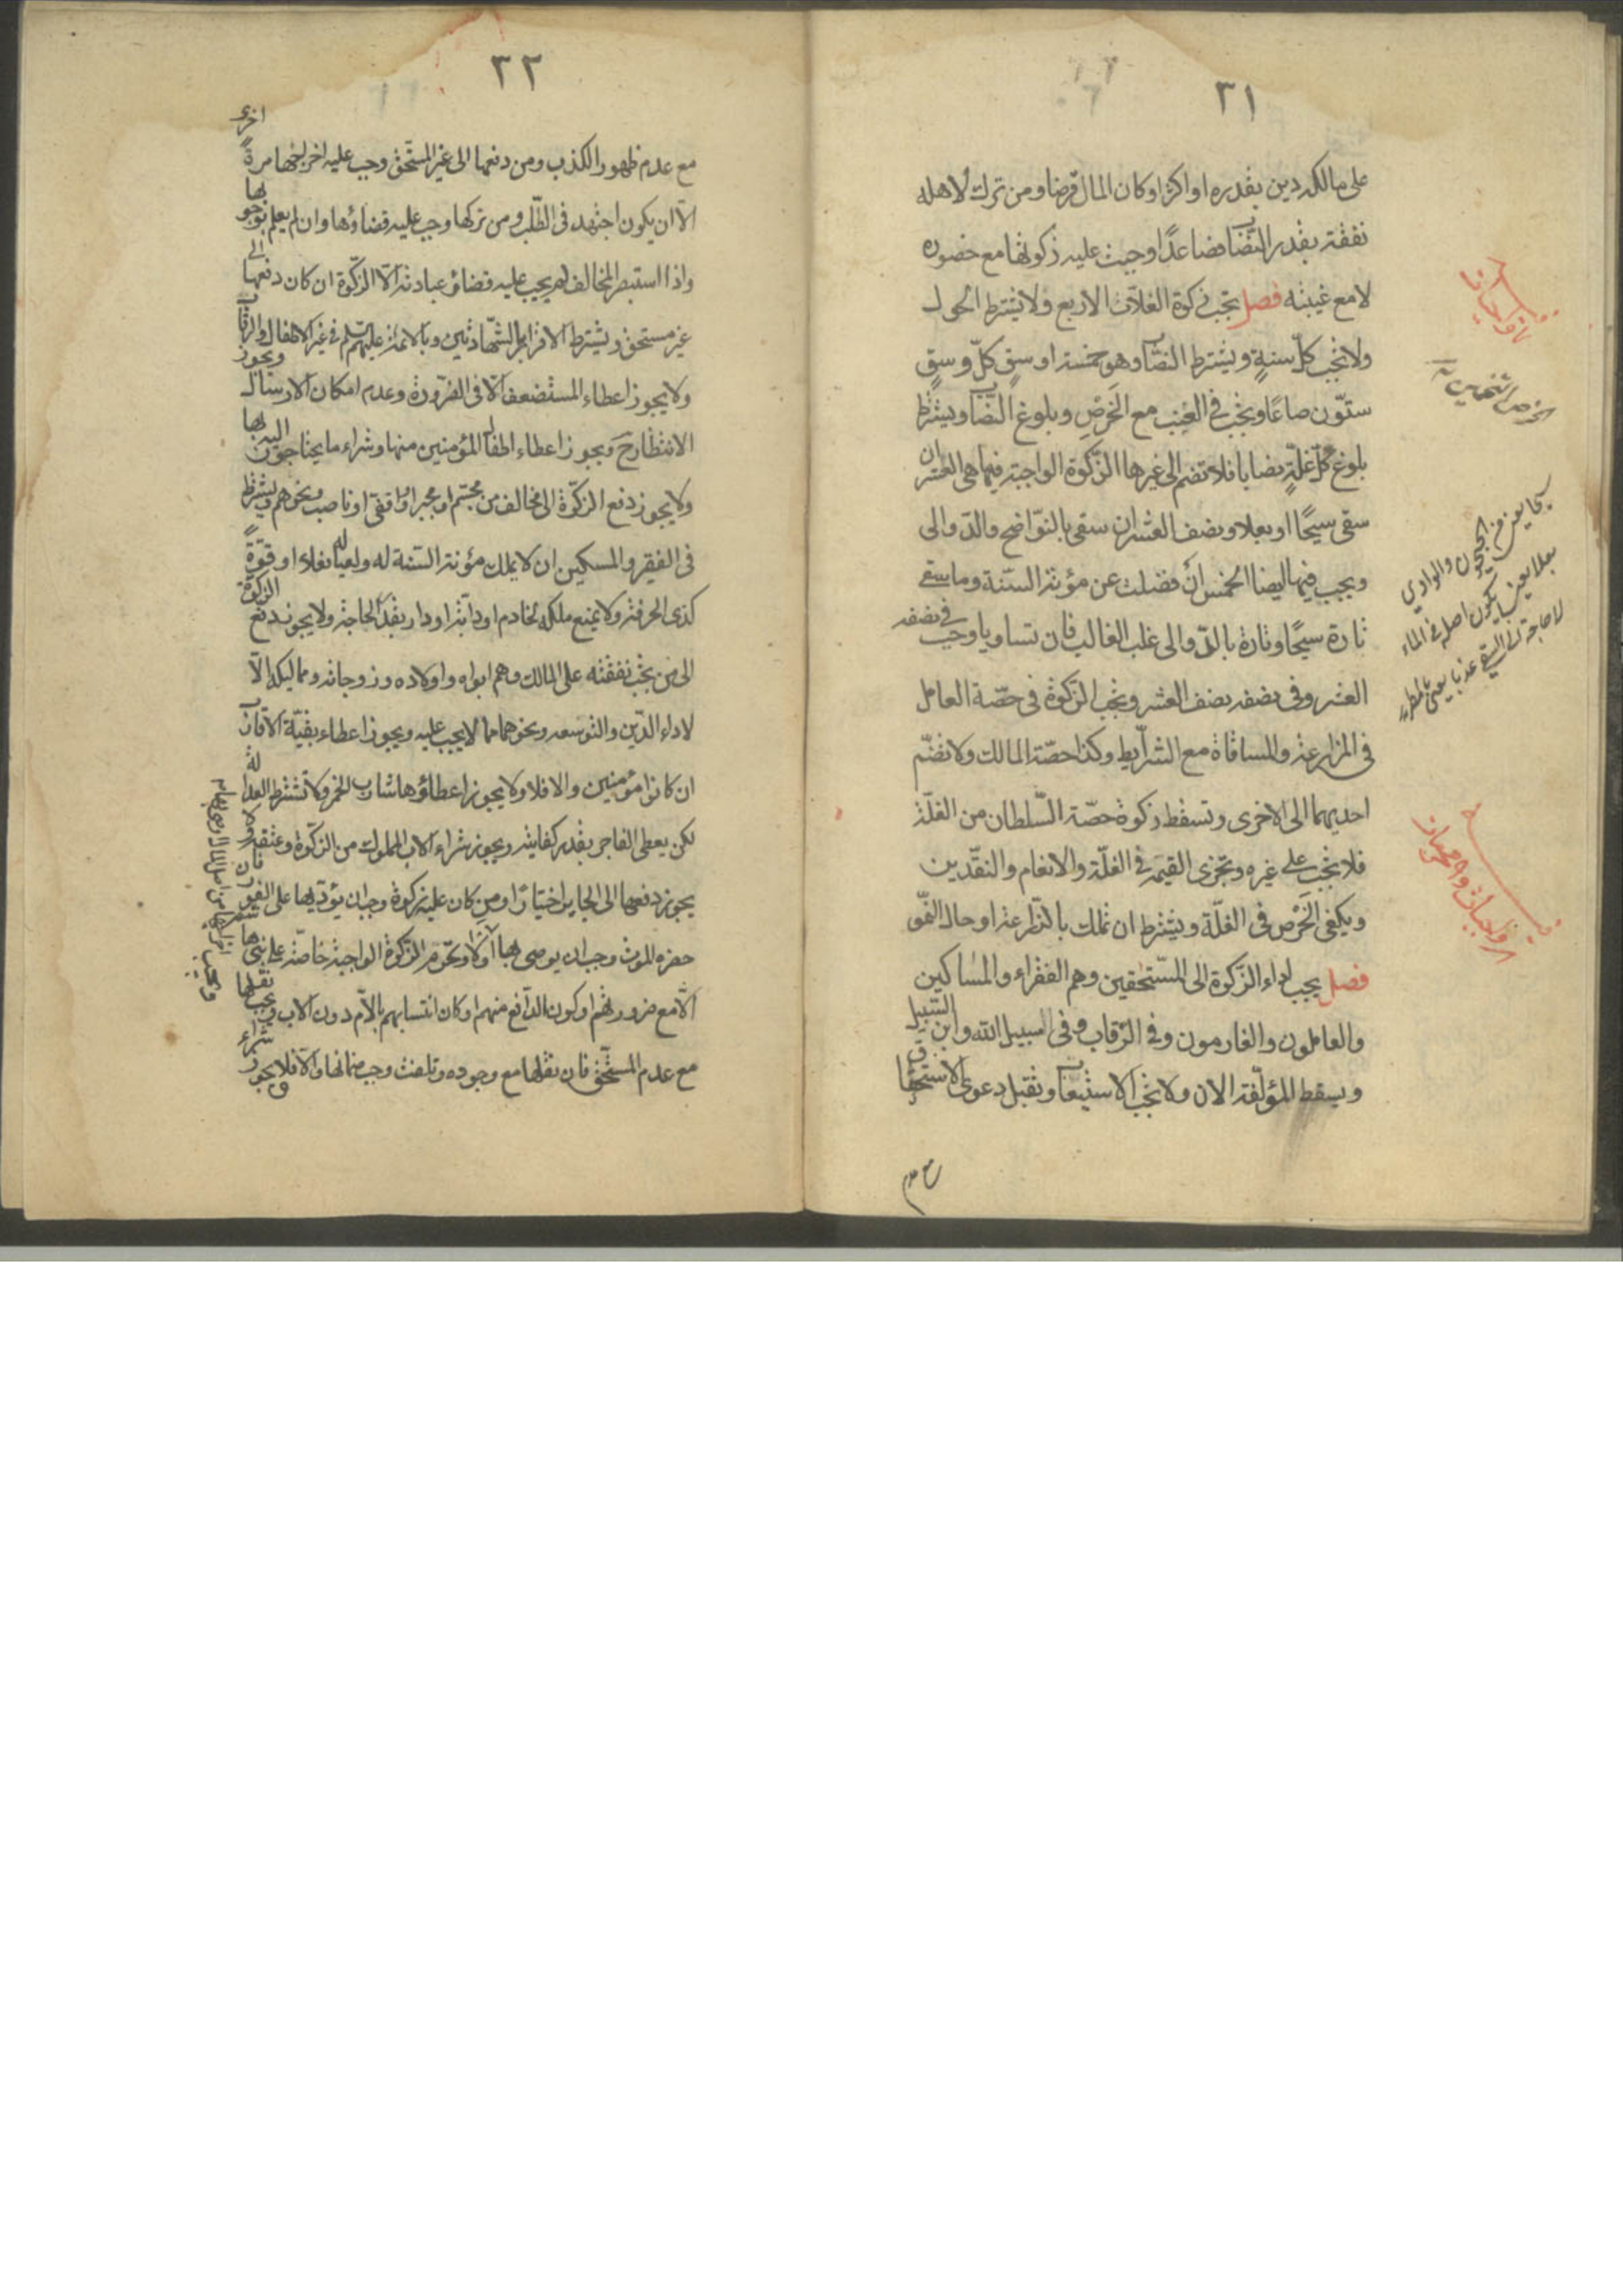 ٣١
على مالكه دين بقدره او اكثر او كان المال قرضا ومن ترك لاهله
نفقة بقدر النصاب فصاعدًا وجبت عليه زكوتها مع حضوره
لا مع غيبته فصل تجب زكوة الغلات الاربع ولا يشترط الحول
ولا تجب كل سنةٍ ويشترط النصاب وهو خمسة اوسقٍ كلّ وسقٍ
ستّون صاعًا وتجب في العنب مع الخَرْصِ وبلوغ النصاب ويشترط
بلوغ كلّ غلّةٍ نصابا فلا تضم الى غيرها الزكوة الواجبة فيها هى العشر ان
سقى سيحًا او بعلا ونصف العشر ان سقى بالنّواضح والدّوالى
ويجب فيها ايضا الخمس ان فضلت عن مؤنة السّنة وما سقى
تارة سيحًا وتارة بالدّوالى غلب الغالب فان تساويا وجب في نصفه
العشر وفى نصفه نصف العشر وتجب الزكوة فى حصّة العامل
فى المزارعة والمساقاة مع الشرايط وكذا حصّة المالك ولا تضمّ
احديهما الى الاخرى وتسقط زكوة حصّة السّلطان من الغلّة
فلا تجب على غيره وتجزى القيمة في الغلّة والانعام والنقدين
ويكفى الخَرْص فى الغلّة ويشترط ان تملك بالزّراعة او حال النموّ
فصل يجب اداء الزكوة الى المستحقين وهم الفقراء والمساكين
والعاملون والغارمون وفي الرّقاب وفى السبيل الله وابن السّبيل
ويسقط المؤلّفة الان ولا تجب الاستيعاب وتقبل دعوى الاستحقاق
مع عدم
الخرص التخمين
لا حاجة الى السقى
٣٢
مع عدم ظهور الكذب ومن دفعها الى غير المستحق وجب عليه اخراجها مرةً اخرى
الّا ان يكون اجتهد فى الطّلب ومن تركها وجب عليه قضاؤها وان لم يعلم بوجوبها
واذا استبصر المخالف لم يجب عليه قضاء عباداته الّا الزكوة ان كان دفعها الى
غير مستحق ويشترط الاقرار بالشهادتين وبالائمة عليهم السّلم في غير الاطفال والرقاب
ولا يجوز اعطاء المستضعف الّا فى الضرورة وعدم امكان الارسال ويجوز
الانتظار ح ويجوز اعطاء اطفال المؤمنين منها وشراء ما يحتاجون اليه لها
ولا يجوز دفع الزكوة الى مخالف من مجسّم او مجبر او واقفى او ناصب ونحوهم ويشترط
فى الفقير والمسكين ان لا يملك مؤنة السّنة له ولعياله فعلا او قوّةً
كذى الحرفة ولا يمنع ملكه لخادم او دابّة او دار بقدر الحاجة ولا يجوز دفع الزكوة
الى من تجب نفقته على المالك وهم ابواه واولاده وزوجاته ومماليكه الّا
لاداء الدّين والتوسعه ونحوهما مما لا يجب عليه ويجوز اعطاء بقيّة الاقارب
ان كانوا مؤمنين والا فلا ولا يجوز اعطاؤها شارب الخمر ولا تشترط العدالة
لكن يعطى الفاجر بقدر كفايته ويجوز شراء الاب المملوك من الزكوة وعتقه ولا
يجوز دفعها الى الجاير اختيارًا ومن كان عليه زكوة وجب ان يؤدّيها على الفور فان
حضره الموت وجب ان يوصى بها وتحرم الزكوة الواجبة خاصّة على بنى هاشم
الّا مع ضرورتهم او كون الدّافع منهم او كان انتسابهم بالامّ دون الاب ويجب نقلها
مع عدم المستحق فان نقلها مع وجوده وتلفت وجب ضمانها والّا فلا ويجوز شراء